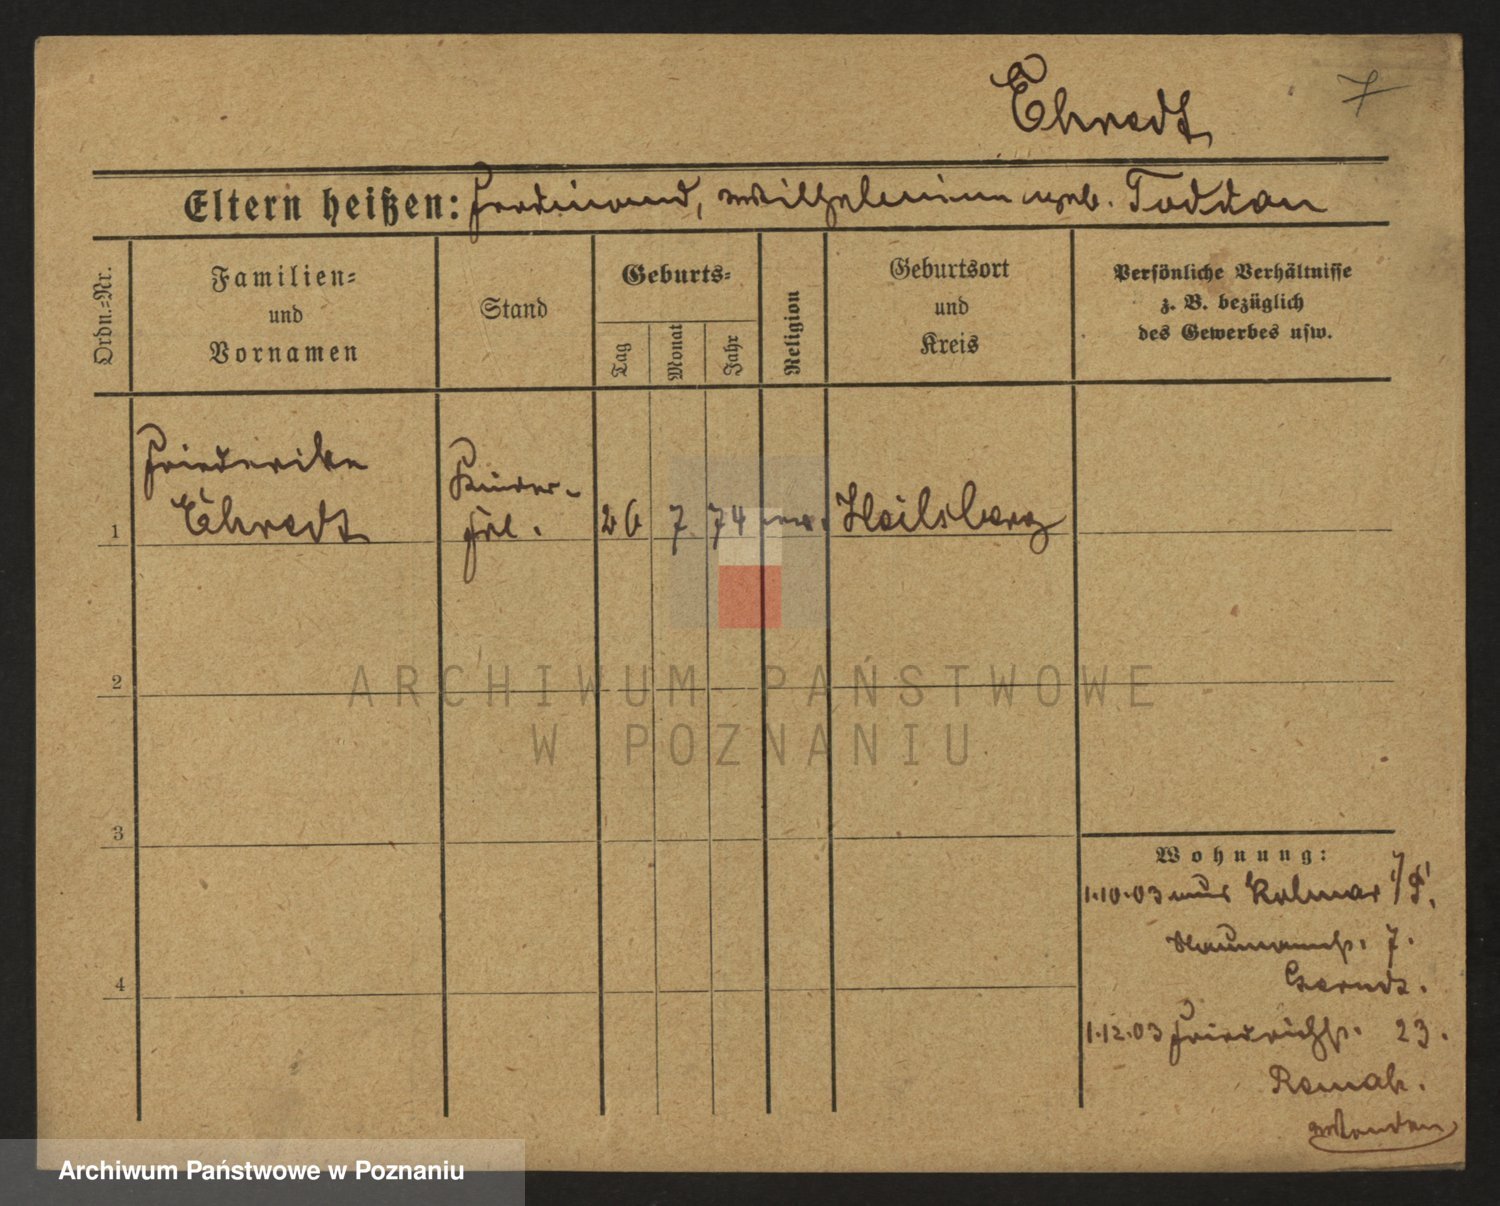 Ehredt
7
Eltern heißen: Ferdinand, Wilhelmine geb. Toddan
Ordn.-Nr.
Familien-
und
Vornamen
Stand
Geburts-
Tag
Monat
Jahr
Religion
Geburtsort
und
Kreis
Persönliche Verhältnisse
z. B. bezüglich
des Gewerbes usw.
Friederike
Ehredt
Kinder-
frl.
1
26 7 74 ev. Heilsberg
2
ARCHIWUM PAŃSTWOWE
W POZNANIU
3
Wohnung:
1.10.03 aus Kolmar i/P.
Naumannstr. 7.
4
1.12.03 Friedrichstr. 23.
Archiwum Państwowe w Poznaniu